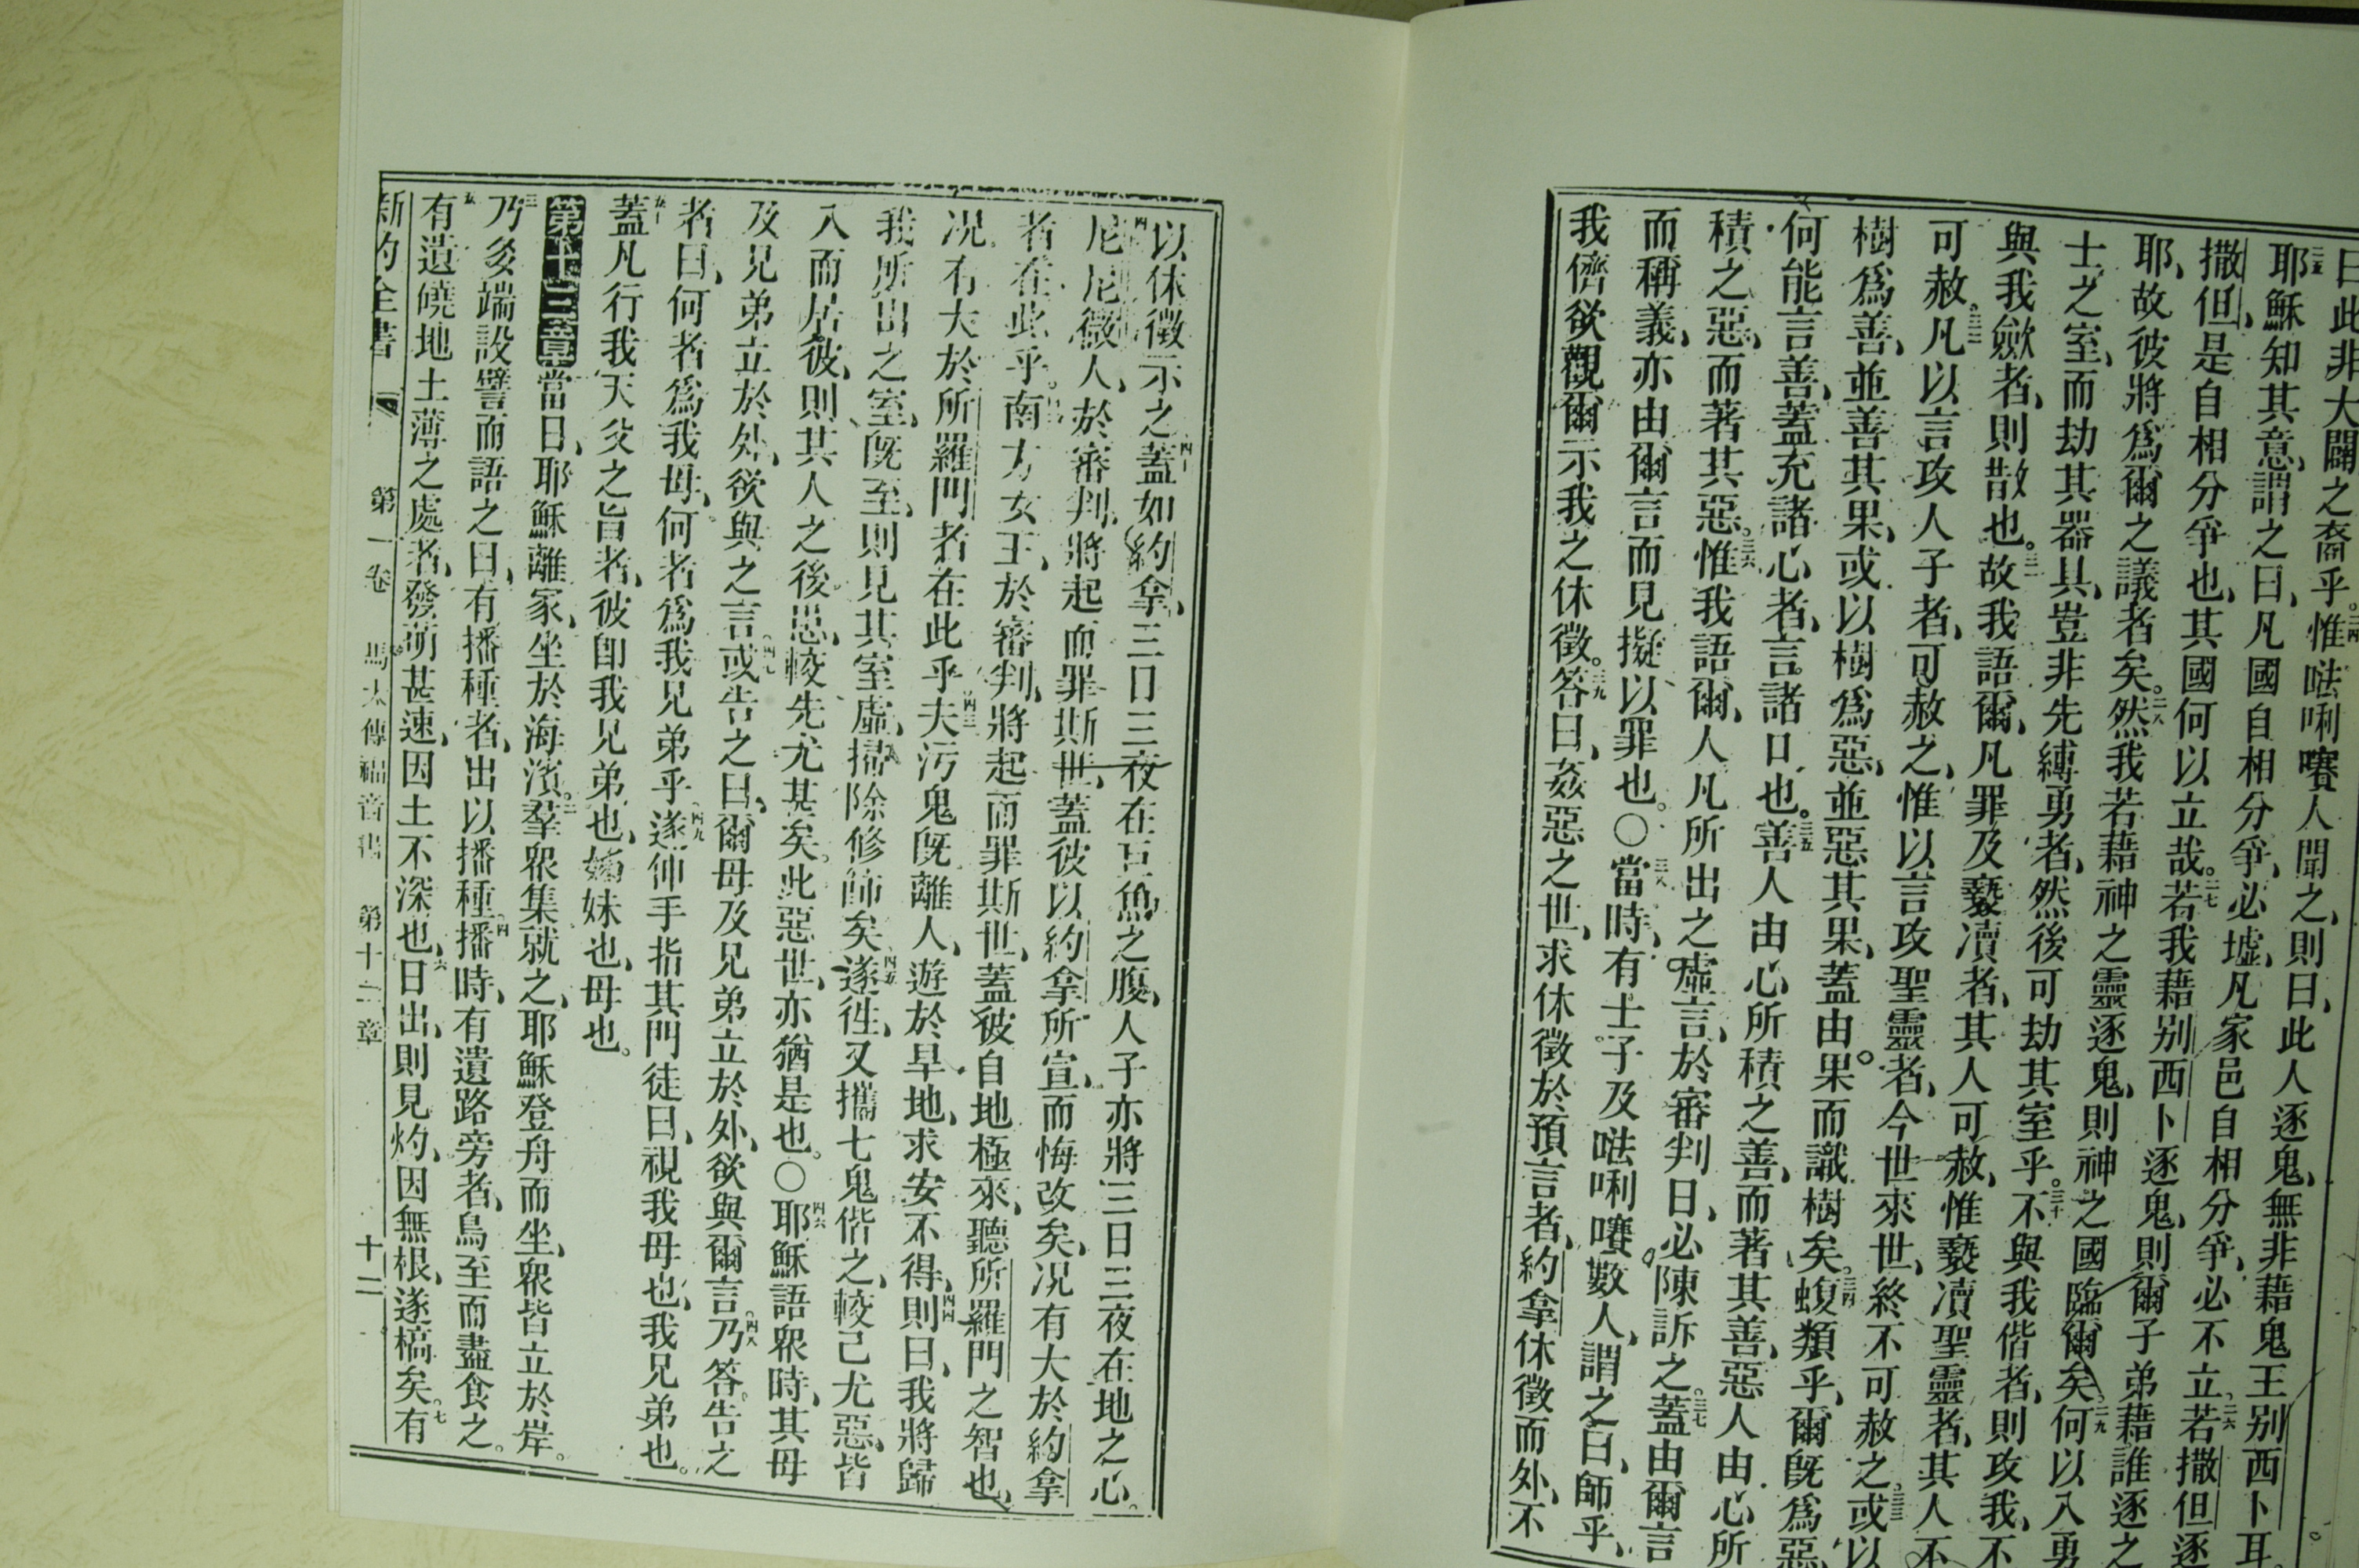 曰此非大闢之裔乎。三四惟𠵽唎㘔人聞之、則曰、此人逐鬼、無非藉鬼王別西卜耳
三五耶穌知其意、謂之曰、凡國自相分爭、必墟、凡家邑自相分爭、必不立。二六若撒但逐
撒但、是自相分爭也、其國何以立哉。二七若我藉別西卜逐鬼、則爾子弟藉誰逐之
耶、故彼將爲爾之議者矣。二八然我若藉神之靈逐鬼、則神之國臨爾矣。二九何以入勇
士之室、而劫其器具、豈非先縛勇者、然後可劫其室乎。三十不與我偕者、則攻我、不
與我斂者、則散也。三一故我語爾、凡罪及褻瀆者、其人可赦、惟褻瀆聖靈者、其人不
可赦。三二凡以言攻人子者、可赦之、惟以言攻聖靈者、今世來世、終不可赦之。三三或以
樹爲善、並善其果、或以樹爲惡、並惡其果、蓋由果而識樹矣。三四蝮類乎、爾旣爲惡、
何能言善、蓋充諸心者、言諸口也。三五善人由心所積之善、而著其善、惡人由心所
積之惡、而著其惡。三六惟我語爾、人凡所出之虛言、於審判日、必陳訴之。三七蓋由爾言
而稱義、亦由爾言而見擬以罪也。○三八當時、有士子及𠵽唎㘔數人、謂之曰、師乎、
我儕欲觀爾示我之休徵。三九答曰、姦惡之世、求休徵於預言者、約拿休徵而外、不
以休徵示之四十蓋如約拿、三日三夜在巨魚之腹、人子亦將三日三夜在地之心。
四一尼尼微人、於審判、將起而罪斯世、蓋彼以約拿所宣、而悔改矣、况有大於約拿
者在此乎。南方女王、於審判、將起而罪斯世、蓋彼自地極來、聽所羅門之智也、
况有大於所羅門者在此乎四三夫污鬼旣離人、遊於旱地、求安不得、四四則曰、我將歸
我所出之室、旣至、則見其室虛、掃除修飾矣、四五遂徃、又攜七鬼偕之、較己尤惡、皆
入而居彼、則其人之後惡、較先尤甚矣。此惡世、亦猶是也。○四六耶穌語衆時、其母
及兄弟立於外、欲與之言。四七或告之曰、爾母及兄弟立於外、欲與爾言。四八乃答告之
者曰、何者爲我母、何者爲我兄弟乎、四九遂伸手指其門徒曰、視我母也、我兄弟也。
五十蓋凡行我天父之旨者、彼卽我兄弟也、姊妹也、母也。
第十三章當日、耶穌離家、坐於海濱。二羣衆集就之、耶穌登舟而坐、衆皆立於岸。
三乃多端設譬而語之曰、有播種者、出以播種。四播時、有遺路旁者、鳥至而盡食之。
五有遺磽地土薄之處者、發萌甚速、因土不深也、六日出、則見灼、因無根、遂槁矣。七有
新約全書 第一卷 馬太傳福音書 第十三章 十二